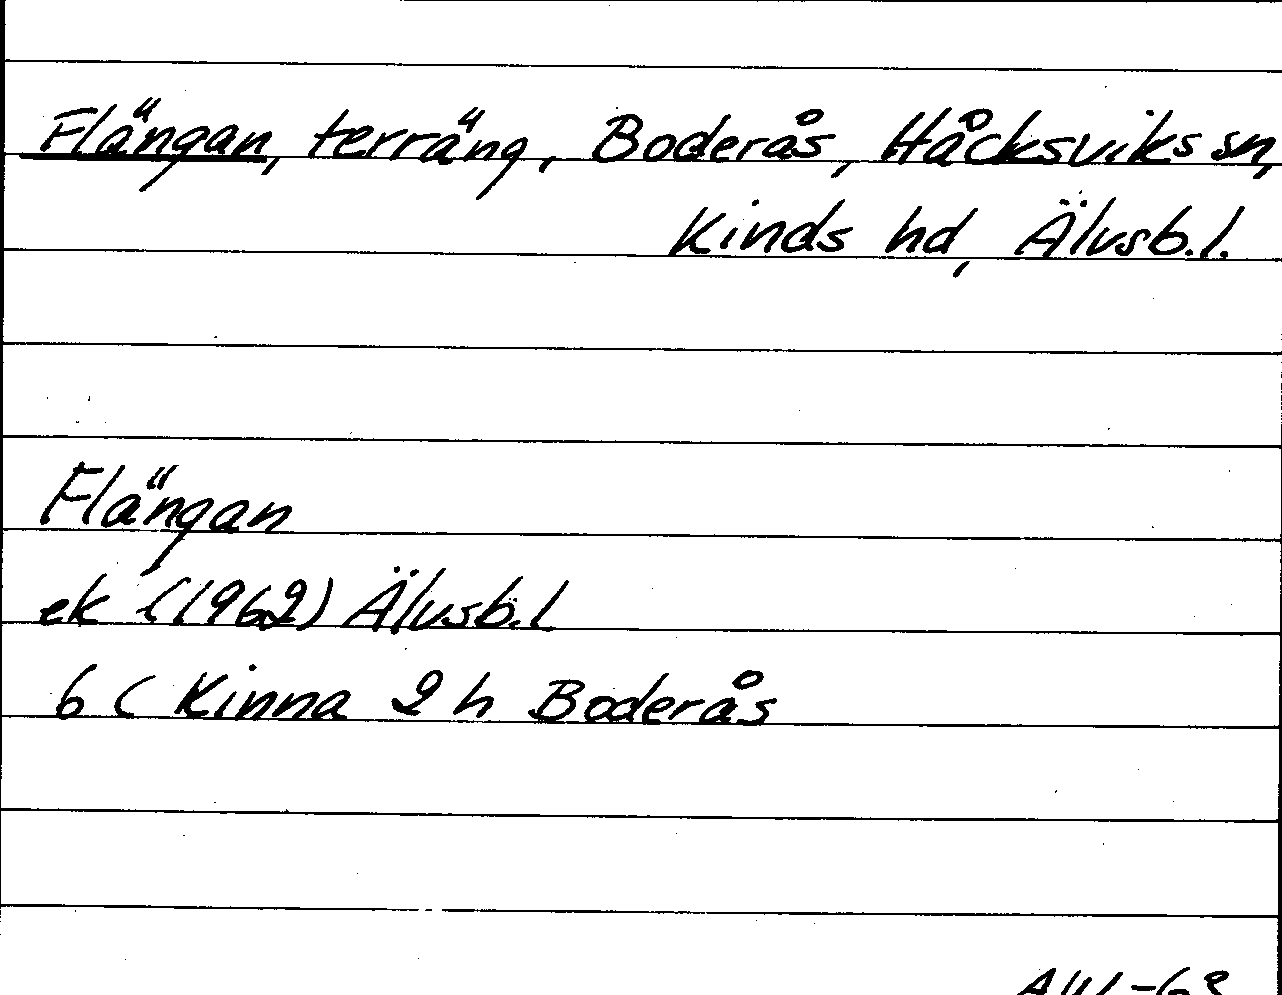 Flängan, terräng, Boderås, Håcksviks sn,
Kinds hd, Älvsb.l.
Flängan
ek (1962) Älvsb.l
6 C Kinna 2 h Boderås